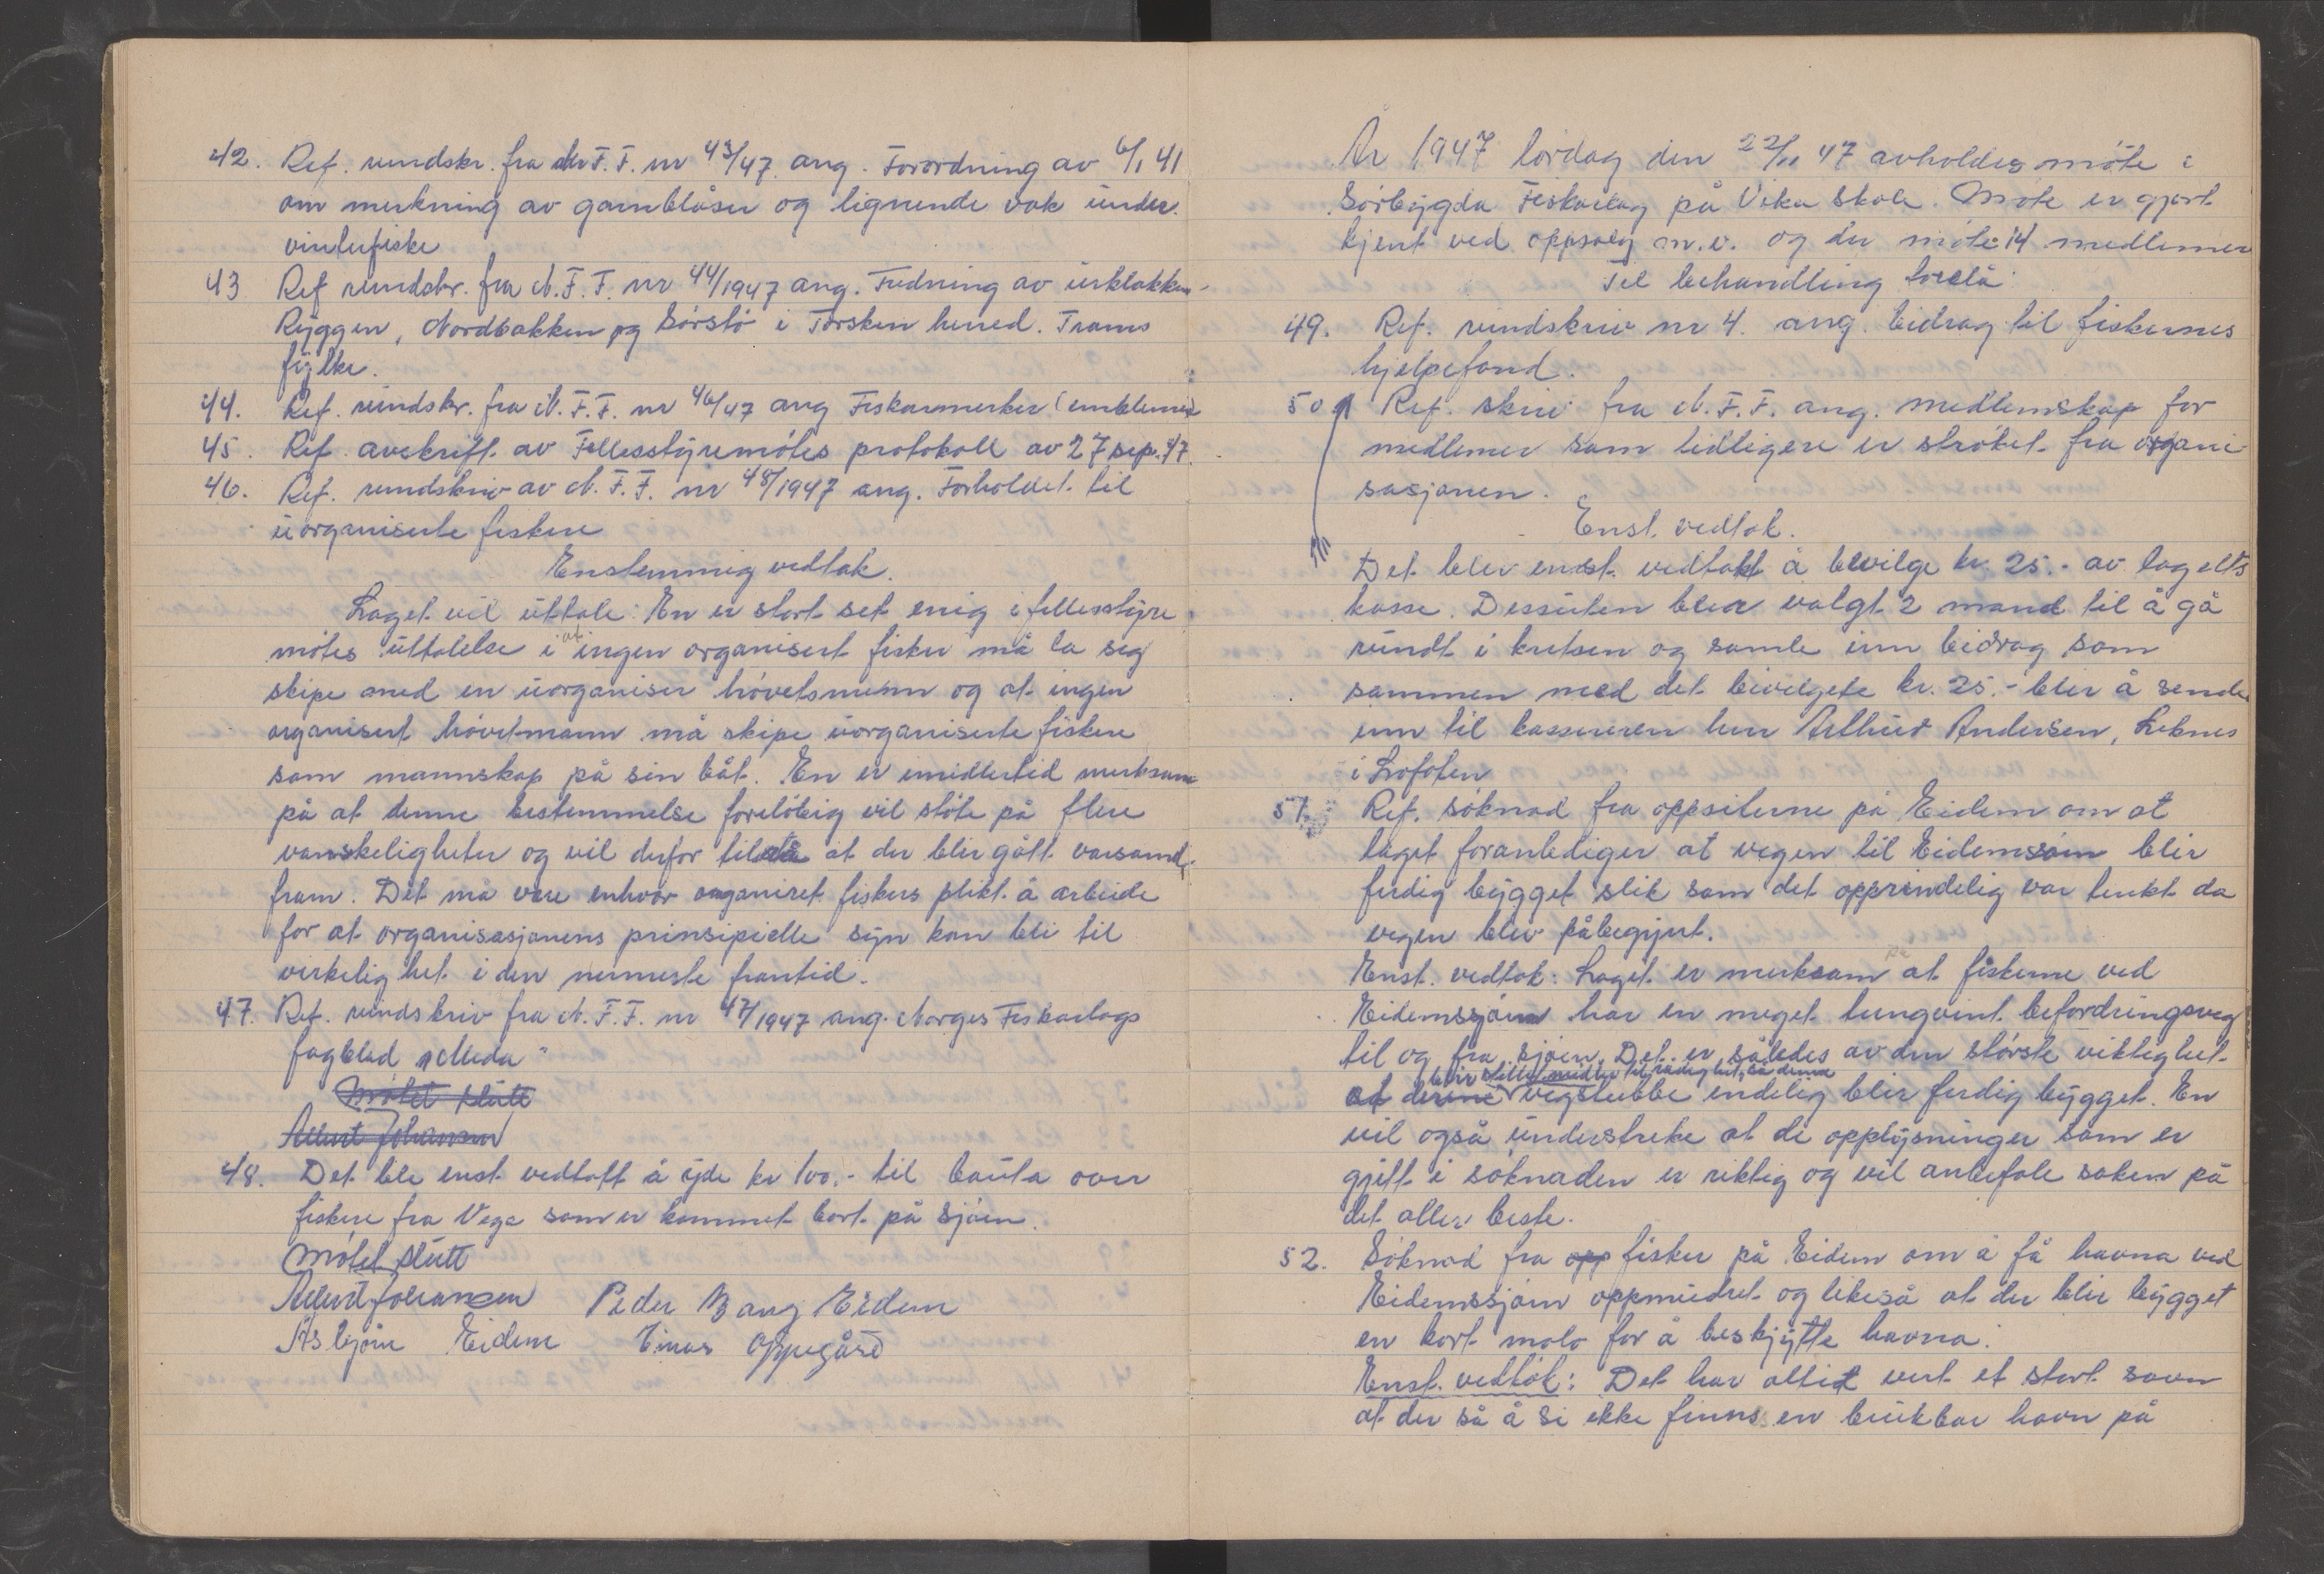 42. Ref. rundskr. fra N.F.F. nr 43/47 ang. Forordning av 6/1 41
om merkning av garnblåser og lignende vak under
vinterfiske
43 Ref rundskr. fra N.F.F. nr 44/1947 ang. Fredning av
Ryggen, Nordbakken og Sørstø i Torsken herred. Troms
fylke.
44. Ref. rundskr. fra N.F.F. nr 46/47 ang Fiskarmerker (emblemer
45. Ref avskrift av Fellesstyremøtes protokoll av 27 sep. 47
46. Ref. rundskriv av N.F.F. nr 48/1947 ang. Forholdet til
uorganiserte fiskere
Enstemmig vedtak.
Laget vil uttale: En er stort set enig i fellesstyre
møtes uttalelse i at ingen organisert fisker må la seg
skipe med en uorganiser høvetsmenn og at ingen
organisert høvetmann må skipe uorganiserte fiskere
som mannskap på sin båt. En er imidlertid merksam
på at denne bestemmelse foreløbig vil støte på flere
vanskeligheter og vil derfor tilrå at der blir gått varsamt
fram. Det må vere enhvør organiret fiskers plikt å arbeide
for at organisasjonens prinsipielle syn kan bli til
virkelighet i den nermeste framtid.
47. Ref. rundskriv fra N.F.F. nr 47/1947 ang. Norges Fiskarlags
fagblad
Møtet slutt
Albert Johansen
48. Det ble enst vedtatt å yde kr 100.- til bauta over
fiskere fra Vega som er kommet bort på sjøen.
Møtet slutt
Albert Johansen Peder Bang Eidem
Asbjørn Eidem Einar Oppegård
År 1947 lørdag den 22/11 47 avholdes møte i
Sørbygda Fiskarlag på Vika Skole. Møte er gjort
kjent ved oppsalg m.v. og der møte 14 medlemer
Til behandling forelå:
49. Ref. rundskriv nr 4. ang. bidrag til fiskernes
hjelpefond.
50 Ref. skriv fra N.F.F. ang. medlemskap for
medlemer som tidligere er strøket fra organi
sasjonen.
Enst. vedtak.
Det blev enst. vedtatt å bevilge kr. 25.- av lagets
kasse. Dessuten blev valgt 2 mand til å gå
rundt i kretsen og samle inn bidrag som
sammen med det bevilgete kr. 25.- blir å sende
inn til kassereren herr Arthur Andersen, Leknes
i Lofoten
51. Ref. søknad fra oppsiterne på Eidem om at
laget foranlediger at vegen til Eidemsøin blir
ferdig bygget slik som det opprindelig var tenkt da
vegen blev påbegynt.
Enst. vedtak: Laget er merksam på at fiskerne ved
Eidemssjøen har en meget tungvint befordringsveg
til og fra sjøen. Det er således av den største viktighet
blir stillet midler til rådighet, så denne
at denne vegstubbe endelig blir ferdig bygget. En
vil også understreke at de opplysninger som er
gjitt i søknaden er riktig og vil anbefale saken på
det aller beste.
52. Søknad fra opp fisker på Eidem om å få havna ved
Eidemssjøin oppmudret og likeså at der blir bygget
en kort molo for å beskjytte havna.
Enst. vedtak: Det har altid vert et stort savn
at der så å si ikke finns en brukbar havn på